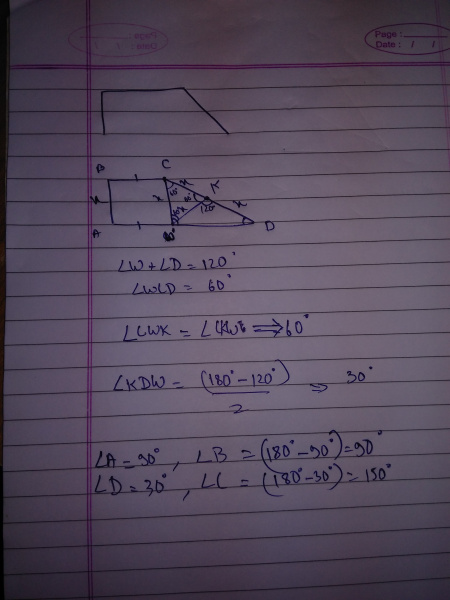 Page :
Date : / /
B C
x x x K
60° 60° x x
120°
A B D
∠W + ∠D = 120°
∠WCD = 60°
∠CWK = ∠CKW ⇒ 60°
∠KDW = (180° - 120°) / 2 ⇒ 30°
∠A = 90°, ∠B = (180° - 90°) = 90°
∠D = 30°, ∠C = (180° - 30°) = 150°